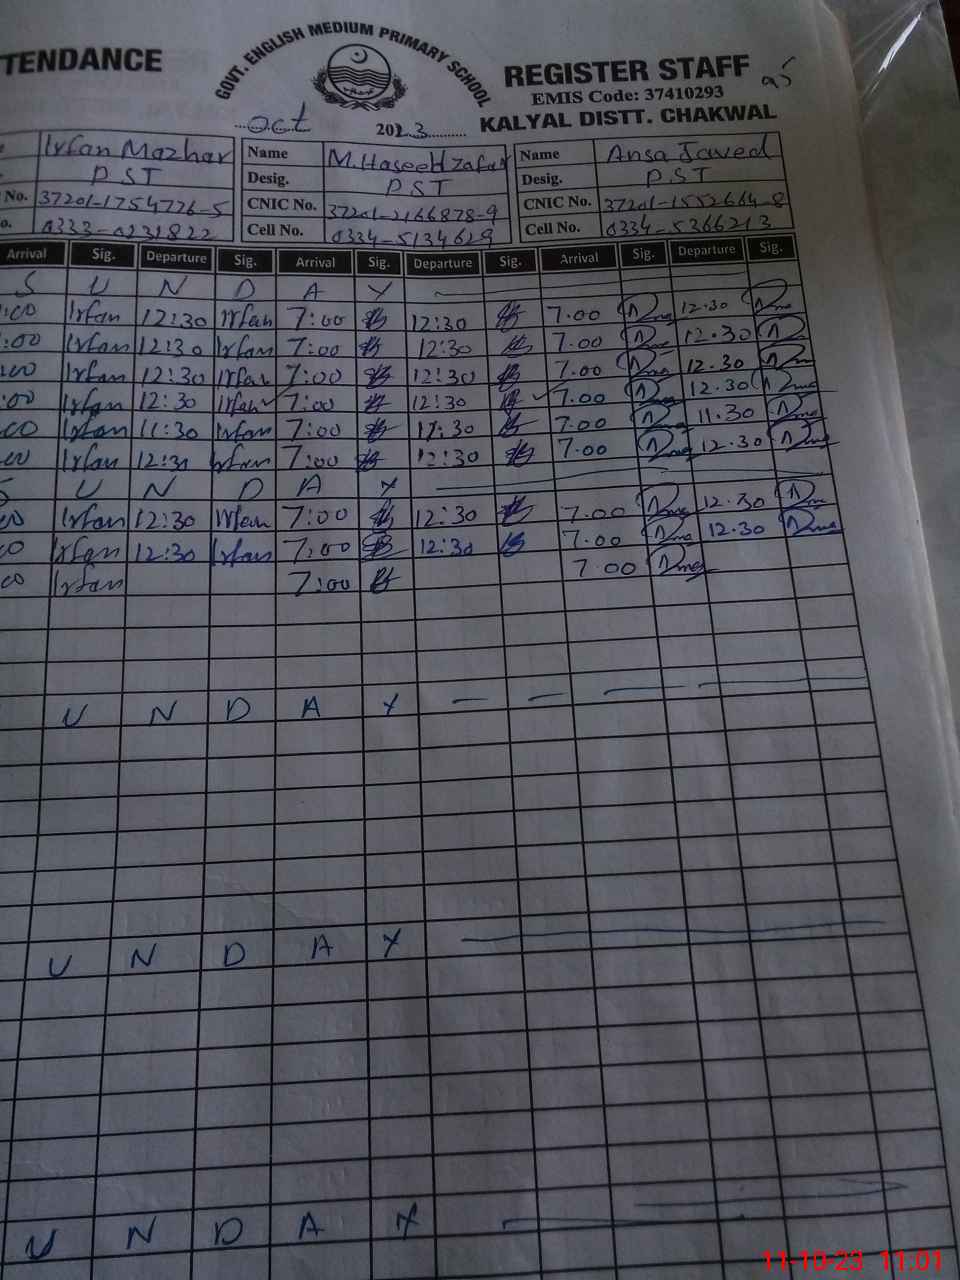 TENDANCE
GOVT. ENGLISH MEDIUM PRIMARY SCHOOL
REGISTER STAFF
EMIS Code: 37410293
KALYAL DISTT. CHAKWAL
Oct 2023
Irfan Mazhar Name M.Haseeb zafar Name Ansa Javed
PST Desig. PST Desig. PST
No. 37201-1754726-5 CNIC No. 37201-2166878-9 CNIC No. 37201-1552664-8
o. 0333-0231822 Cell No. 0334-5134629 Cell No. 0334-5366213
Arrival Sig. Departure Sig. Arrival Sig. Departure Sig. Arrival Sig. Departure Sig.
S U N D A Y
:00 Irfan 12:30 Irfan 7:00 12:30 7.00 12.30
:00 Irfan 12:30 Irfan 7:00 12:30 7.00 12.30
:00 Irfan 12:30 Irfan 7:00 12:30 7.00 12.30
:00 Irfan 12:30 Irfan 7:00 12:30 7.00 12.30
00 Irfan 11:30 Irfan 7:00 11:30 7.00 11.30
00 Irfan 12:30 Irfan 7:00 12:30 7.00 12.30
S U N D A Y
00 Irfan 12:30 Irfan 7:00 12:30 7.00 12.30
00 Irfan 12:30 Irfan 7:00 12:30 7.00 12.30
00 Irfan 7:00 7.00
U N D A Y
U N D A Y
U N D A Y
11-10-23 11:01